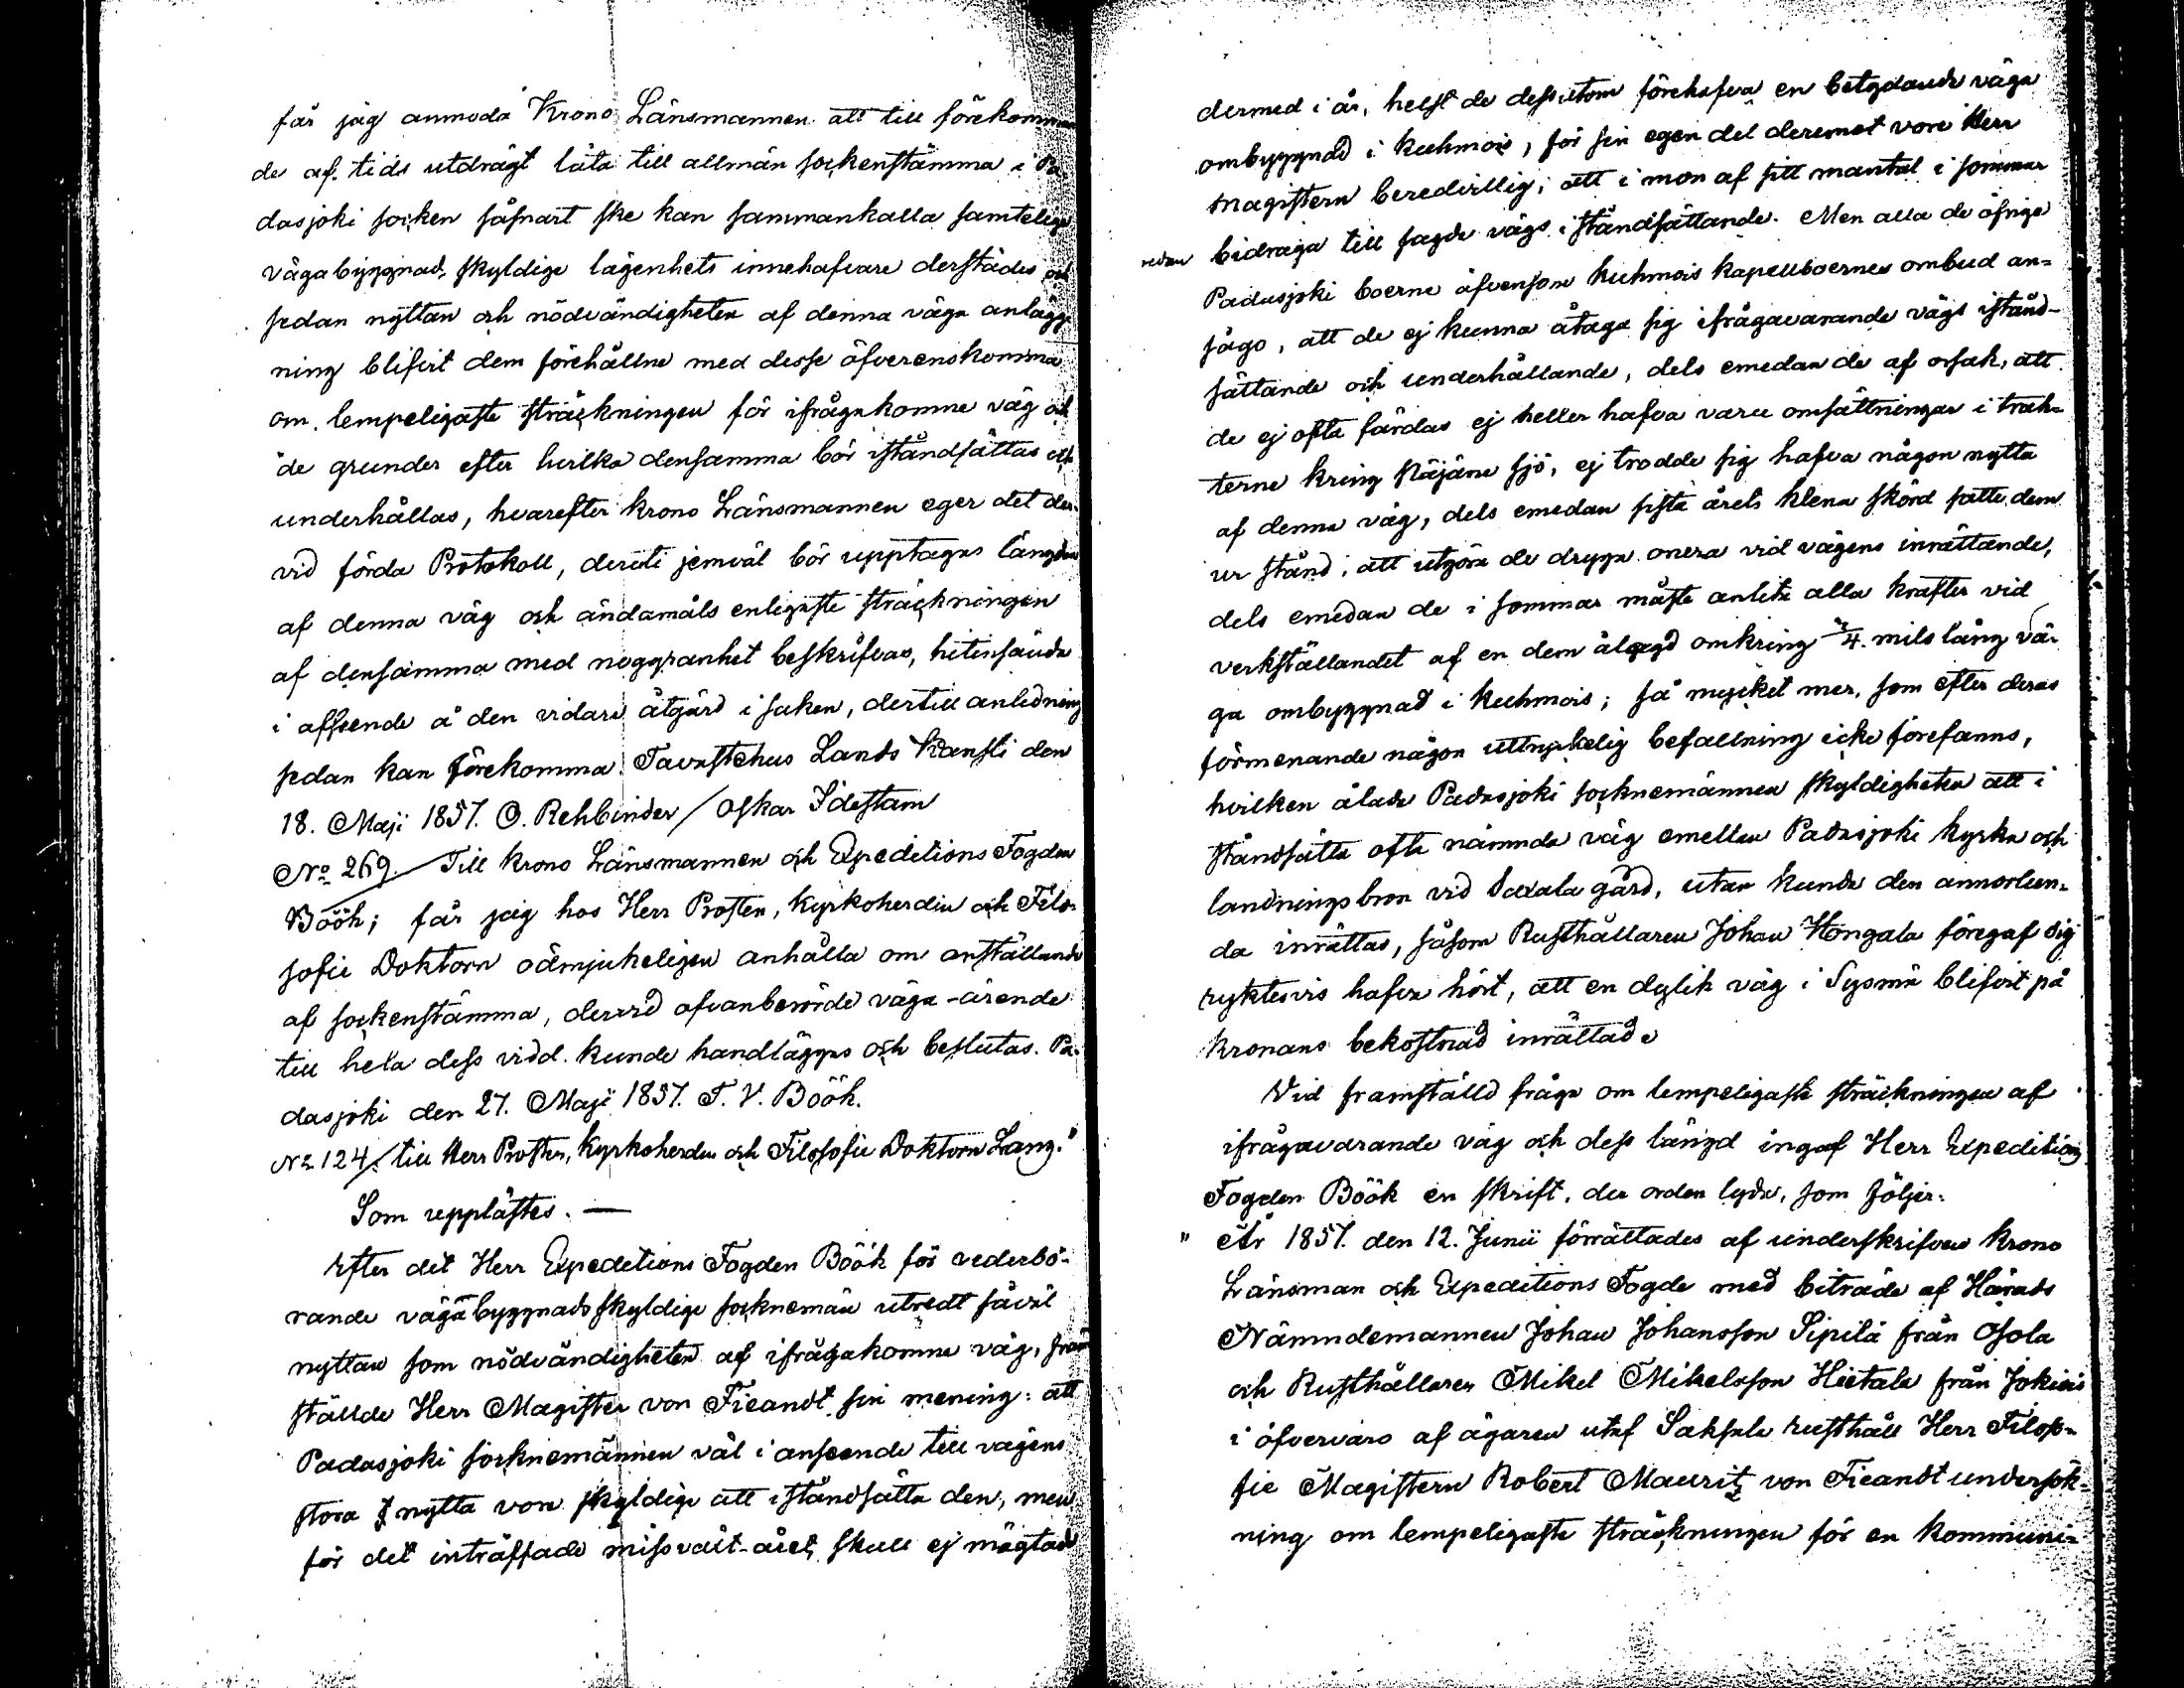 får jag anmoda Krono Länsmannen att till förekomman
de af tids utdrägt låta till allmän sockenstämma i Pa
dasjoki socken såsnart ske kan sammankalla samtelige
vägabyggnads skyldige lägenhets innehafvare derstädes och
sedan nyttan och nödvändigheten af denna väga anlägg
ning blifvit dem förehållne med desse öfverenskomma
om lempeligaste sträckningen för ifrågakomne väg och
de grunder efter hvilka densamma bör iståndsättas och
underhållas, hvarefter Krono Länsmannen eger det der
vid förda Protokoll, deruti jemväl bör upptagas längden
af denna väg och ändamåls enligaste sträckningen
af densamma med noggranhet beskrifvas, hitinsända
i afseende å den vidare åtgärd i saken, dertill anledning
sedan kan förekomma. Tavastehus Lands Kansli den
18. Maji 1857. O. Rehbinder / Oskar Idestam
No 269. Till Krono Länsmannen och Expeditions Fogden
Böök; får jag hos Herr Prosten, Kyrkoherden och Filo-
sofie Doktorn ödmjukeligen anhålla om anställande
af sockenstämma, dervid ofvanberörde väga-ärende
till hela dess vidd kunde handläggas och beslutas. Pa-
dasjoki den 27. Maji 1857. T. V. Böök.
No 124/ till Herr Prosten, Kyrkoherden och Filosofie Doktorn Lang."
Som upplästes. —
Efter det Herr Expeditions Fogden Böök för vederbö-
rande vägabyggnadsskyldige socknemän utredt såväl
nyttan som nödvändigheten af ifrågakomne väg, fram
ställde Herr Magister von Fieandt sin mening: att
Padasjoki socknemännen väl i anseende till vägens
stora nytta vore skyldige att iståndsätta den, men
för det inträffade missväxt-året skull ej mägtade
dermed i år, helst de dessutom förehafva en betydande väga
ombyggnad i Kuhmois, för sin egen del deremot vore Herr
Magistern beredvillig, att i mon af sitt mantal i sommar
redan bidraga till sagde vägs iståndsättande. Men alla de öfrige
Padasjoki boerne äfvensom Kuhmois kapellboernes ombud an-
sågo, att de ej kunna åtaga sig ifrågavarande vägs istånd-
sättande och underhållande, dels emedan de af orsak, att
de ej ofta färdas ej heller hafva varu omsättningar i trak-
terne kring Päjäne sjö, ej trodde sig hafva någon nytta
af denna väg, dels emedan sista årets klena skörd satte dem
ur stånd, att utgöra de dryga onera vid vägens inrättande,
dels emedan de i sommar måste anlita alla krafter vid
verkställandet af en dem ålagd omkring 3/4 mils lång vä-
ga ombyggnad i Kuhmois; så mycket mer, som efter deras
förmenande någon uttryckelig befallning icke förefanns,
hvilken ålade Padasjoki socknemännen skyldigheten att i
ståndsätta ofta nämnda väg emellan Padasjoki kyrka och
landningsbron vid Saxala gård, utan kunde den annorlun-
da inrättas, såsom Rusthållaren Johan Hongala föregaf sig
ryktesvis hafva hört, att en dylik väg i Sysmä blifvit på
kronans bekostnad inrättad.
Vid framställd fråga om lempeligaste sträckningen af
ifrågavarande väg och dess längd ingaf Herr Expeditions
Fogden Böök en skrift, der orden lyda, som följer:
" År 1857. den 12. Junii förrättades af underskrifven Krono
Länsman och Expeditions Fogde med biträde af Härads
Nämndemannen Johan Johansson Sipilä från Osola
och Rusthållaren Mikel Mikelsson Hietala från Jokiois
i öfvervaro af ägaren utaf Saksala rusthåll Herr Filoso-
fie Magistern Robert Mauritz von Fieandt undersök-
ning om lempeligaste sträckningen för en kommuni-